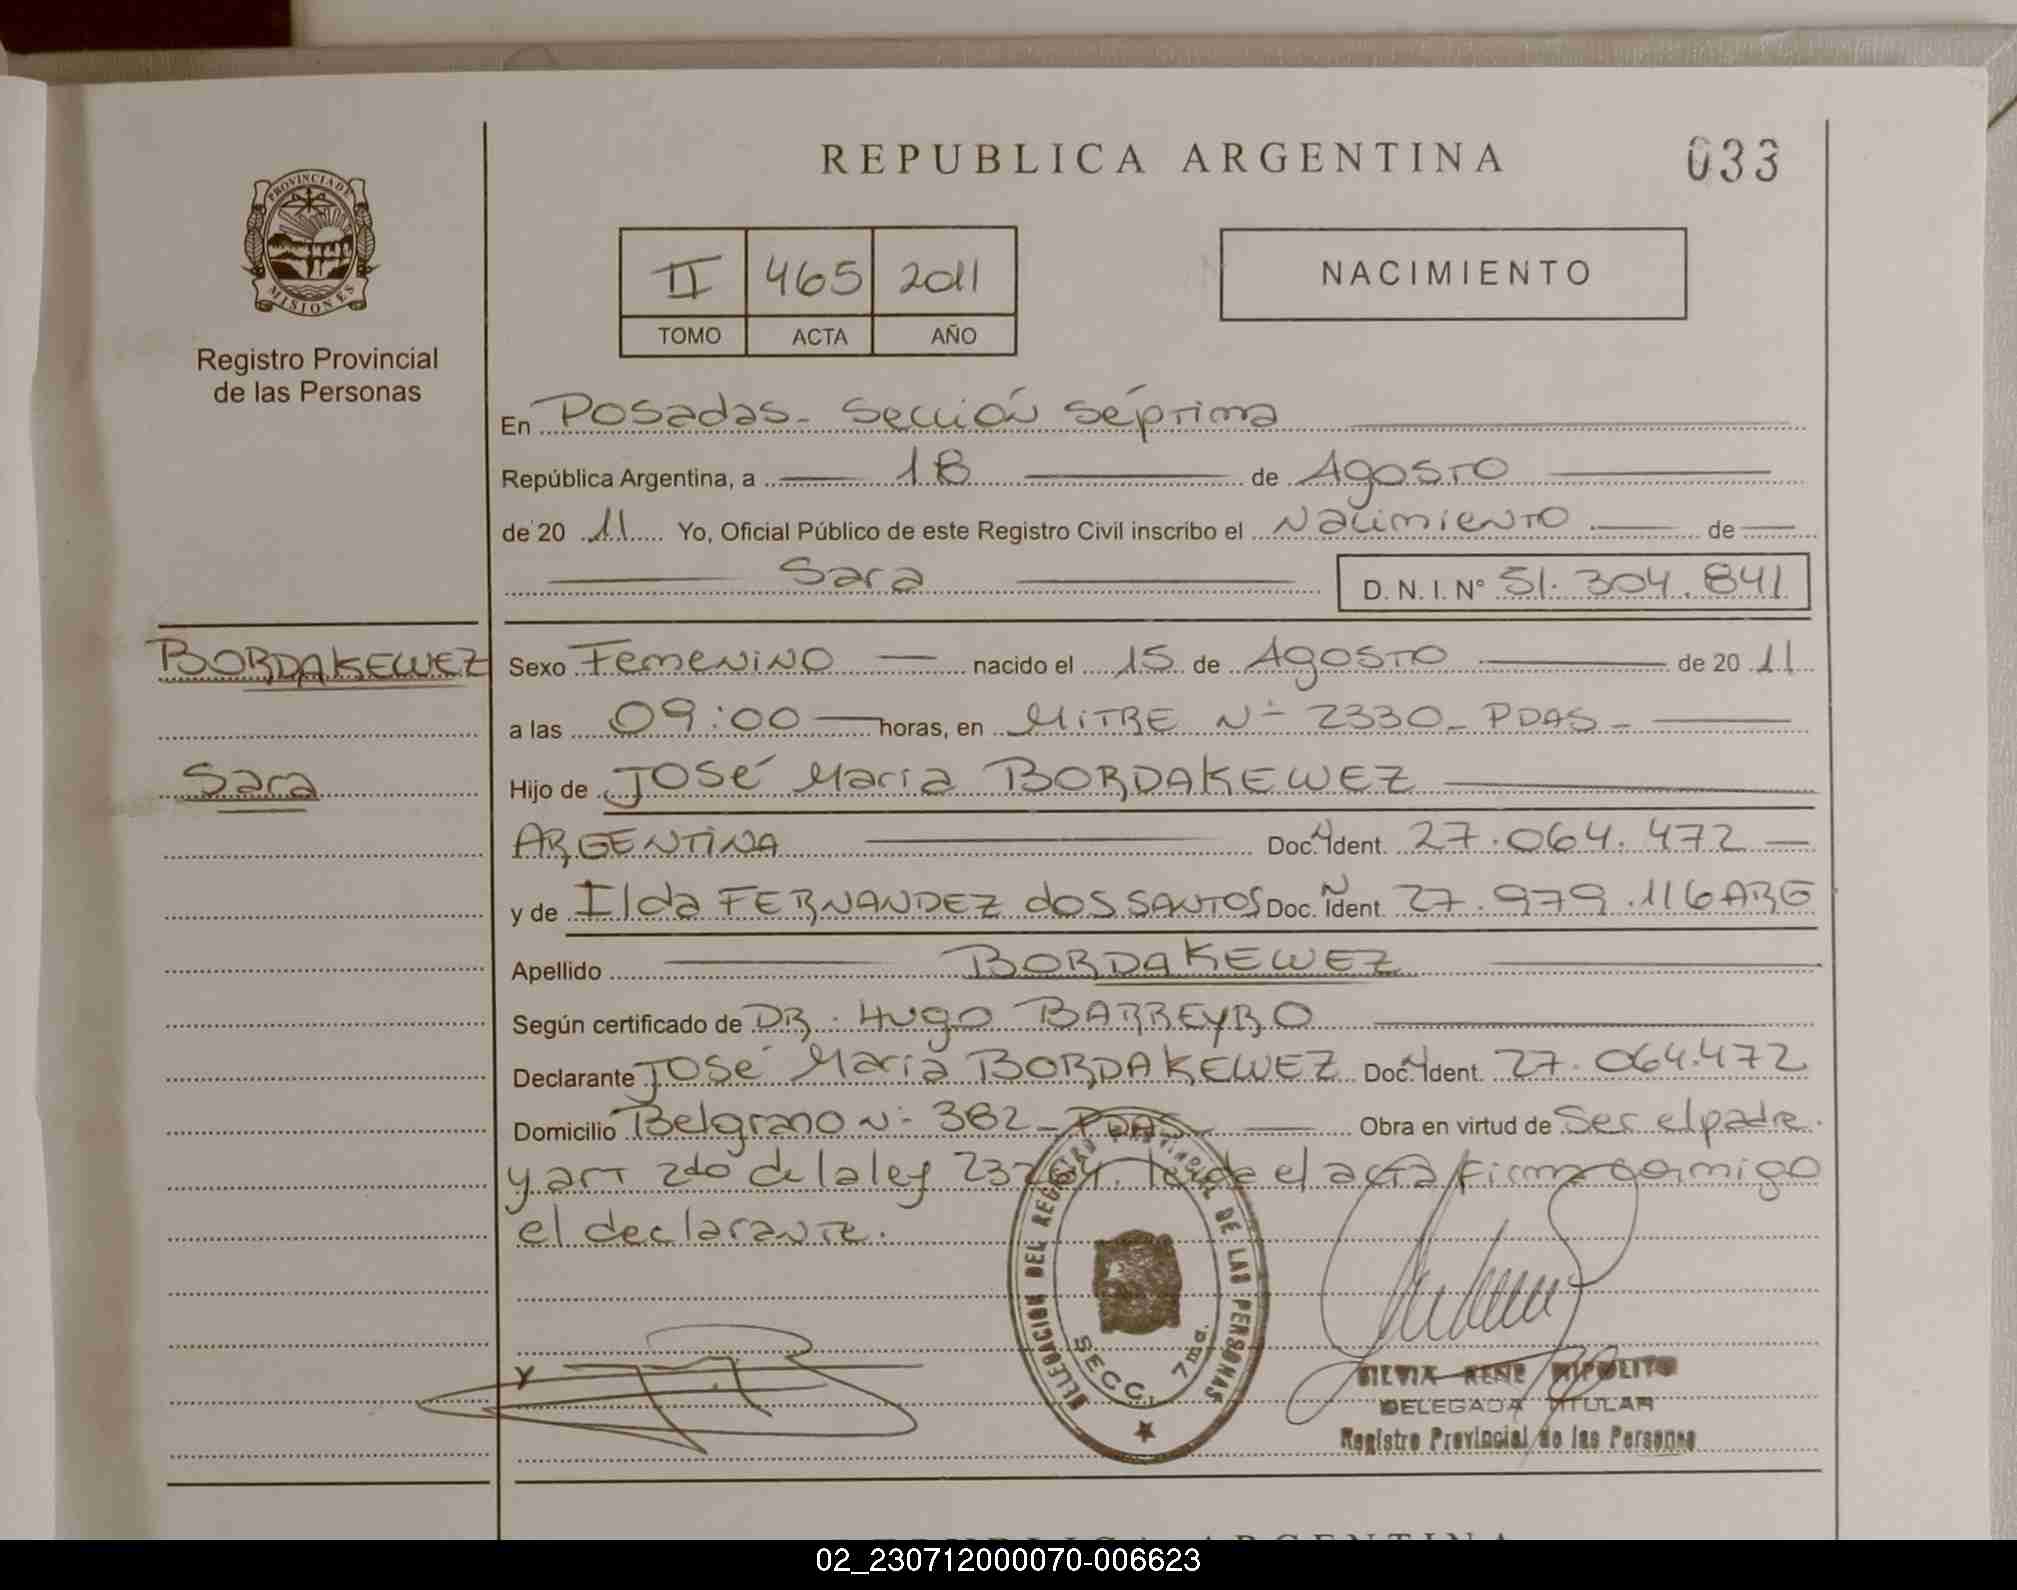 REPUBLICA ARGENTINA
033
PROVINCIA DE
MISIONES
Registro Provincial
de las Personas
II 465 2011
TOMO ACTA AÑO
NACIMIENTO
En Posadas - Sección Séptima
República Argentina, a 18 de Agosto
de 20 11 Yo, Oficial Público de este Registro Civil inscribo el Nacimiento de
Sara D. N. I. N° 51.304.841
BORDAKEWEZ
Sara
Sexo Femenino nacido el 15 de Agosto de 20 11
a las 09:00 horas, en MITRE Nº 2330 - PDAS -
Hijo de José María BORDAKEWEZ
ARGENTINA Doc. N Ident. 27.064.472
y de Ilda FERNANDEZ dos SANTOS Doc. Ñ Ident. 27.979.116 ARG
Apellido BORDAKEWEZ
Según certificado de DR. Hugo BARREYRO
Declarante José María BORDAKEWEZ Doc. N Ident. 27.064.472
Domicilio Belgrano Nº 382 - PDAS - Obra en virtud de Ser el padre.
y art 2do de la ley 23264. leída el acta firma conmigo
el declarante.
DELEGACION DEL REGISTRO PROVINCIAL DE LAS PERSONAS
SECC. 7ma.
SILVIA RENE HIPOLITO
DELEGADA TITULAR
Registro Provincial de las Personas
REPUBLICA ARGENTINA
02_230712000070-006623